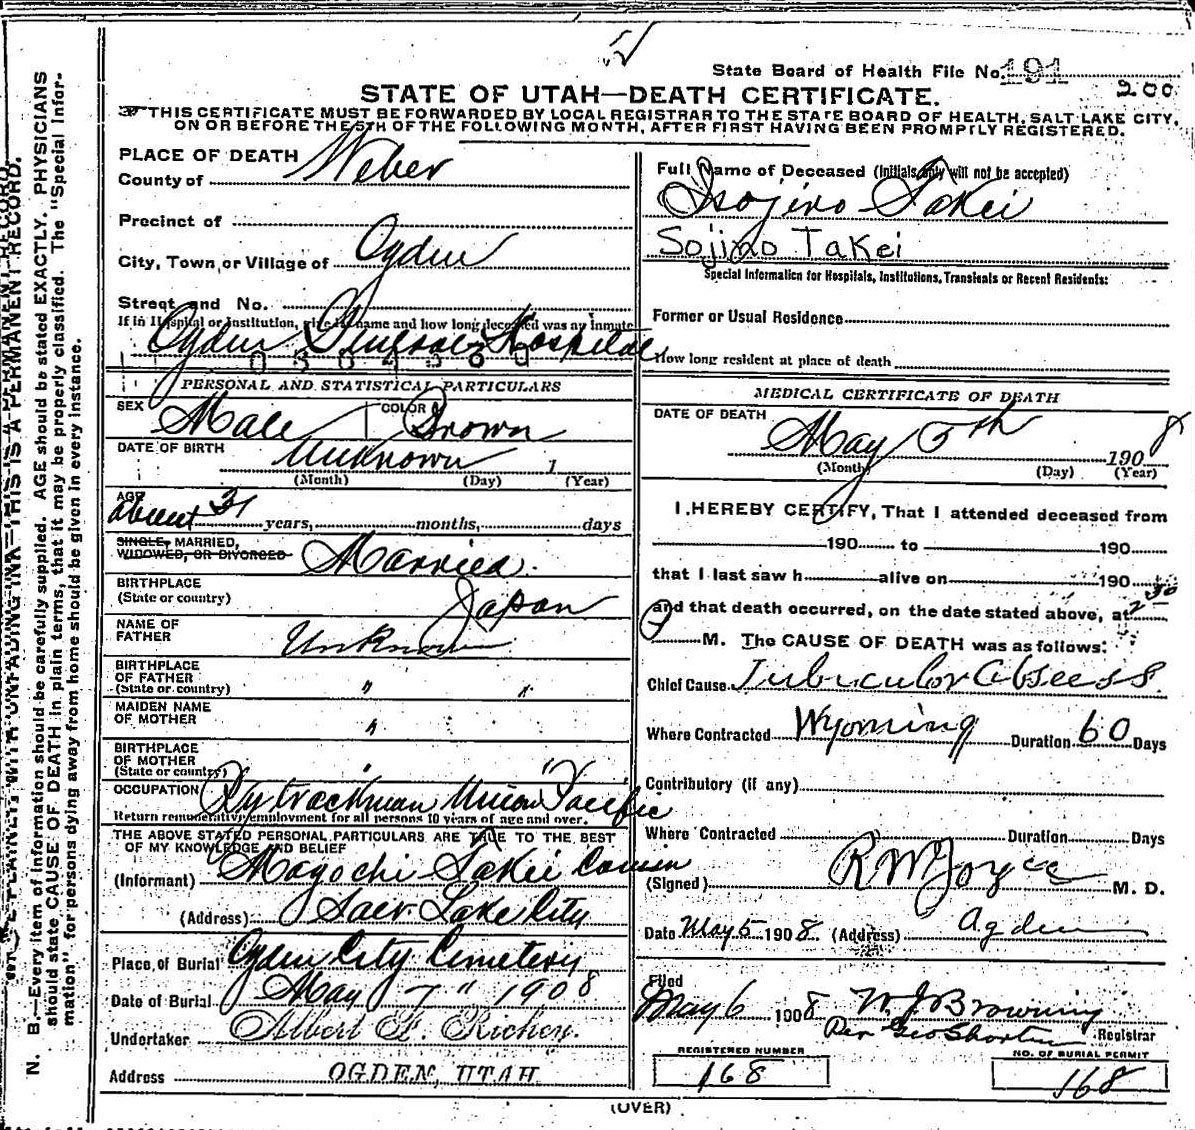 State Board of Health File No. 191
200
STATE OF UTAH—DEATH CERTIFICATE.
THIS CERTIFICATE MUST BE FORWARDED BY LOCAL REGISTRAR TO THE STATE BOARD OF HEALTH, SALT LAKE CITY,
ON OR BEFORE THE 5TH OF THE FOLLOWING MONTH, AFTER FIRST HAVING BEEN PROMPTLY REGISTERED.
PLACE OF DEATH
County of Weber
Precinct of
City, Town, or Village of Ogden
Street and No.
If in Hospital or Institution, give its name and how long deceased was an inmate
Ogden General Hospital
PERSONAL AND STATISTICAL PARTICULARS
SEX Male COLOR Brown
DATE OF BIRTH Unknown 1
(Month) (Day) (Year)
AGE about 31 years, months, days
SINGLE, MARRIED,
WIDOWED, OR DIVORCED Married.
BIRTHPLACE
(State or country) Japan
NAME OF
FATHER Unknown
BIRTHPLACE
OF FATHER
(State or country) " "
MAIDEN NAME
OF MOTHER "
BIRTHPLACE
OF MOTHER
(State or country)
OCCUPATION Ry trackman Union Pacific
Return remunerative employment for all persons 10 years of age and over.
THE ABOVE STATED PERSONAL PARTICULARS ARE TRUE TO THE BEST
OF MY KNOWLEDGE AND BELIEF
(Informant) Magochi Takei Cousin
(Address) Salt Lake City
Place of Burial Ogden City Cemetery
Date of Burial May 7" 1908
Undertaker Albert F. Richey.
Address OGDEN, UTAH
Full Name of Deceased (Initials only will not be accepted)
Isojiro Takei
Sojiro Takei
Special Information for Hospitals, Institutions, Transients or Recent Residents:
Former or Usual Residence
How long resident at place of death
MEDICAL CERTIFICATE OF DEATH
DATE OF DEATH
May 5th 1908
(Month) (Day) (Year)
I HEREBY CERTIFY, That I attended deceased from
190 to 190
that I last saw h alive on 190
and that death occurred, on the date stated above, at 2 30
P M. The CAUSE OF DEATH was as follows:
Chief Cause Tubiculor Absess
Where Contracted Wyoming Duration 60 Days
Contributory (if any)
Where Contracted Duration Days
(Signed) R W Joyce M. D.
Date May 5 1908. (Address) Ogden
Filed
May 6 1908 W. J. Browning
Per Geo Shorten Registrar
REGISTERED NUMBER
168
NO. OF BURIAL PERMIT
168
(OVER)
N. B.—Every item of information should be carefully supplied. AGE should be stated EXACTLY. PHYSICIANS
should state CAUSE OF DEATH in plain terms, that it may be properly classified. The "Special Infor-
mation" for persons dying away from home should be given in every instance.
WRITE PLAINLY, WITH UNFADING INK—THIS IS A PERMANENT RECORD.